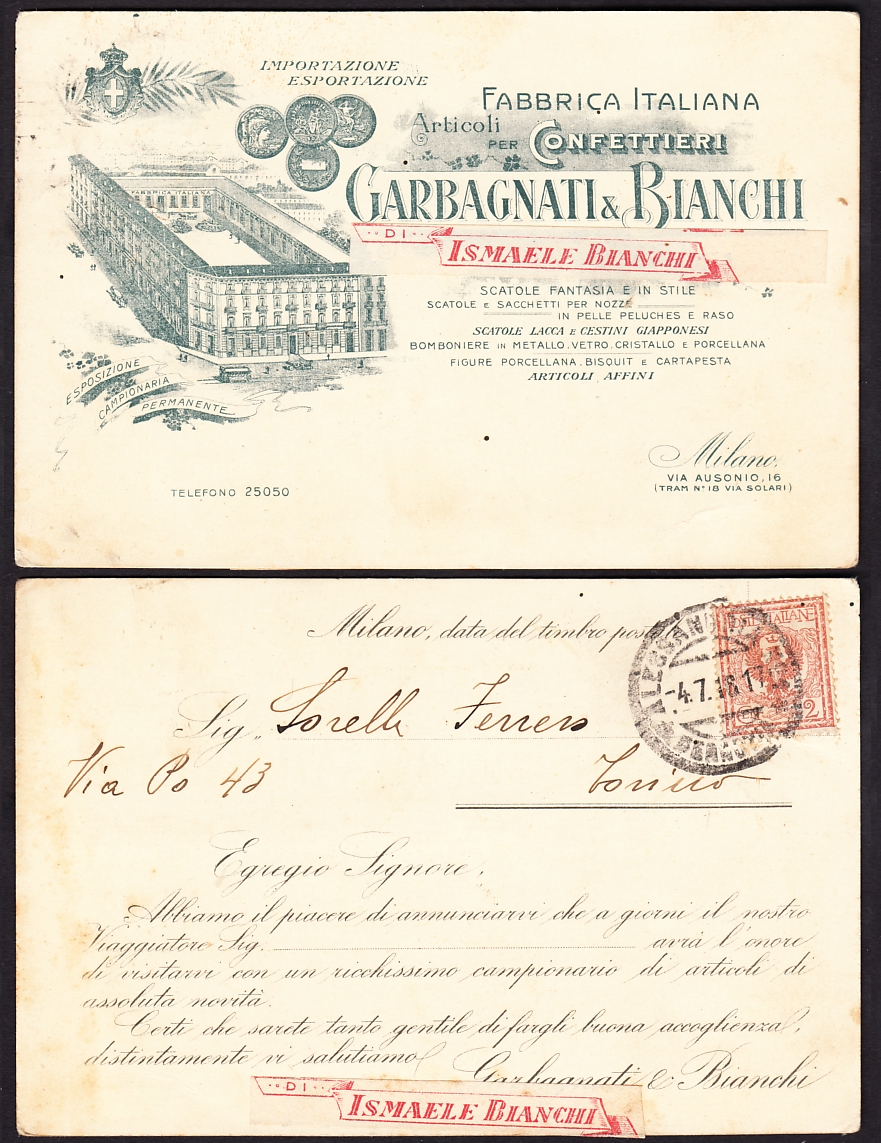 IMPORTAZIONE
ESPORTAZIONE
FABBRICA ITALIANA
Articoli
PER CONFETTIERI
GARBAGNATI & BIANCHI
DI
ISMAELE BIANCHI
FABBRICA ITALIANA
SCATOLE FANTASIA E IN STILE
SCATOLE E SACCHETTI PER NOZZE
IN PELLE PELUCHES E RASO
SCATOLE LACCA E CESTINI GIAPPONESI
BOMBONIERE IN METALLO. VETRO. CRISTALLO E PORCELLANA
FIGURE PORCELLANA. BISQUIT E CARTAPESTA
ARTICOLI AFFINI
ESPOSIZIONE
CAMPIONARIA
PERMANENTE
Milano.
VIA AUSONIO, 16
(TRAM N° 18 VIA SOLARI)
TELEFONO 25050
Milano, data del timbro post
-4.7.18.17
2
Sig. Sorelle Ferrero
Via Po 43 Torino
Egregio Signore,
Abbiamo il piacere di annunciarvi che a giorni il nostro
Viaggiatore Sig. avrà l'onore
di visitarvi con un ricchissimo campionario di articoli di
assoluta novità.
Certi che sarete tanto gentile di fargli buona accoglienza,
distintamente vi salutiamo
Garbagnati & Bianchi
DI
ISMAELE BIANCHI